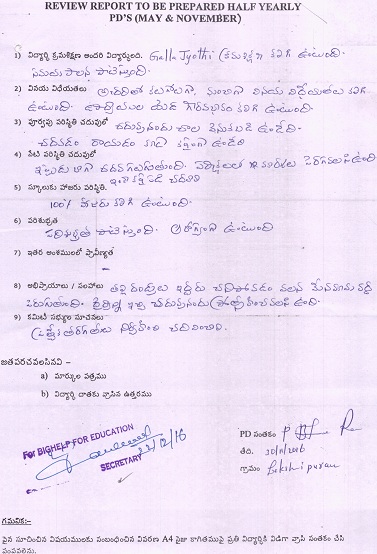 REVIEW REPORT TO BE PREPARED HALF YEARLY
PD'S (MAY & NOVEMBER)
1) విద్యార్థి క్రమశిక్షణ అందరి విద్యార్థులంది. Galla Jyothi క్రమశిక్షణ కలిగి ఉంటుంది.
సమయ పాలన పాటిస్తుంది.
2) వినయ విధేయతలు అందరితో కలవేలగా, మంచిగా వినయ విధేయతలు కలిగి
ఉంటుంది. ఉపాధ్యాయుల యెడ గౌరవభావం కలిగి ఉంటుంది.
3) పూర్వపు పరిస్థితి చదువులో చదువునందు చాల వెనుకబడి ఉండేది.
చదవడం రాయడం కూడ కష్టంగా ఉండేది
4) నేటి పరిస్థితి చదువులో
ఇప్పుడు బాగా చదవగలుగుతుంది.
5) స్కూలుకు హాజరు పరిస్థితి.
100% హాజరు కలిగి ఉంటుంది.
6) పరిశుభ్రత
పరిశుభ్రత పాటిస్తుంది. ఆరోగ్యంగా ఉంటుంది
7) ఇతర అంశములలో ప్రావీణ్యత
8) అభిప్రాయాలు / సలహాలు తల్లిదండ్రులు ఇద్దరు చనిపోవడం వలన మేనమామ వద్ద
పెరుగుతుంది. ధైర్యాన్ని ఇచ్చి చదువునందు ప్రోత్సహించవలసి ఉంది.
9) కమిటీ సభ్యుల సూచనలు
జతపరచవలసినవి –
a) మార్కుల పత్రము
b) విద్యార్థి దాతకు వ్రాసిన ఉత్తరము
For BIGHELP FOR EDUCATION
22/12/16
SECRETARY
PD సంతకం
తేది. 30/11/2016
గ్రామం Lakshipuram
గమనిక:-
పైన సూచించిన విషయములకు సంబంధించిన వివరణ A4 సైజు కాగితముపై ప్రతి విద్యార్థికి విడిగా వ్రాసి సంతకం చేసి
పంపవలెను.